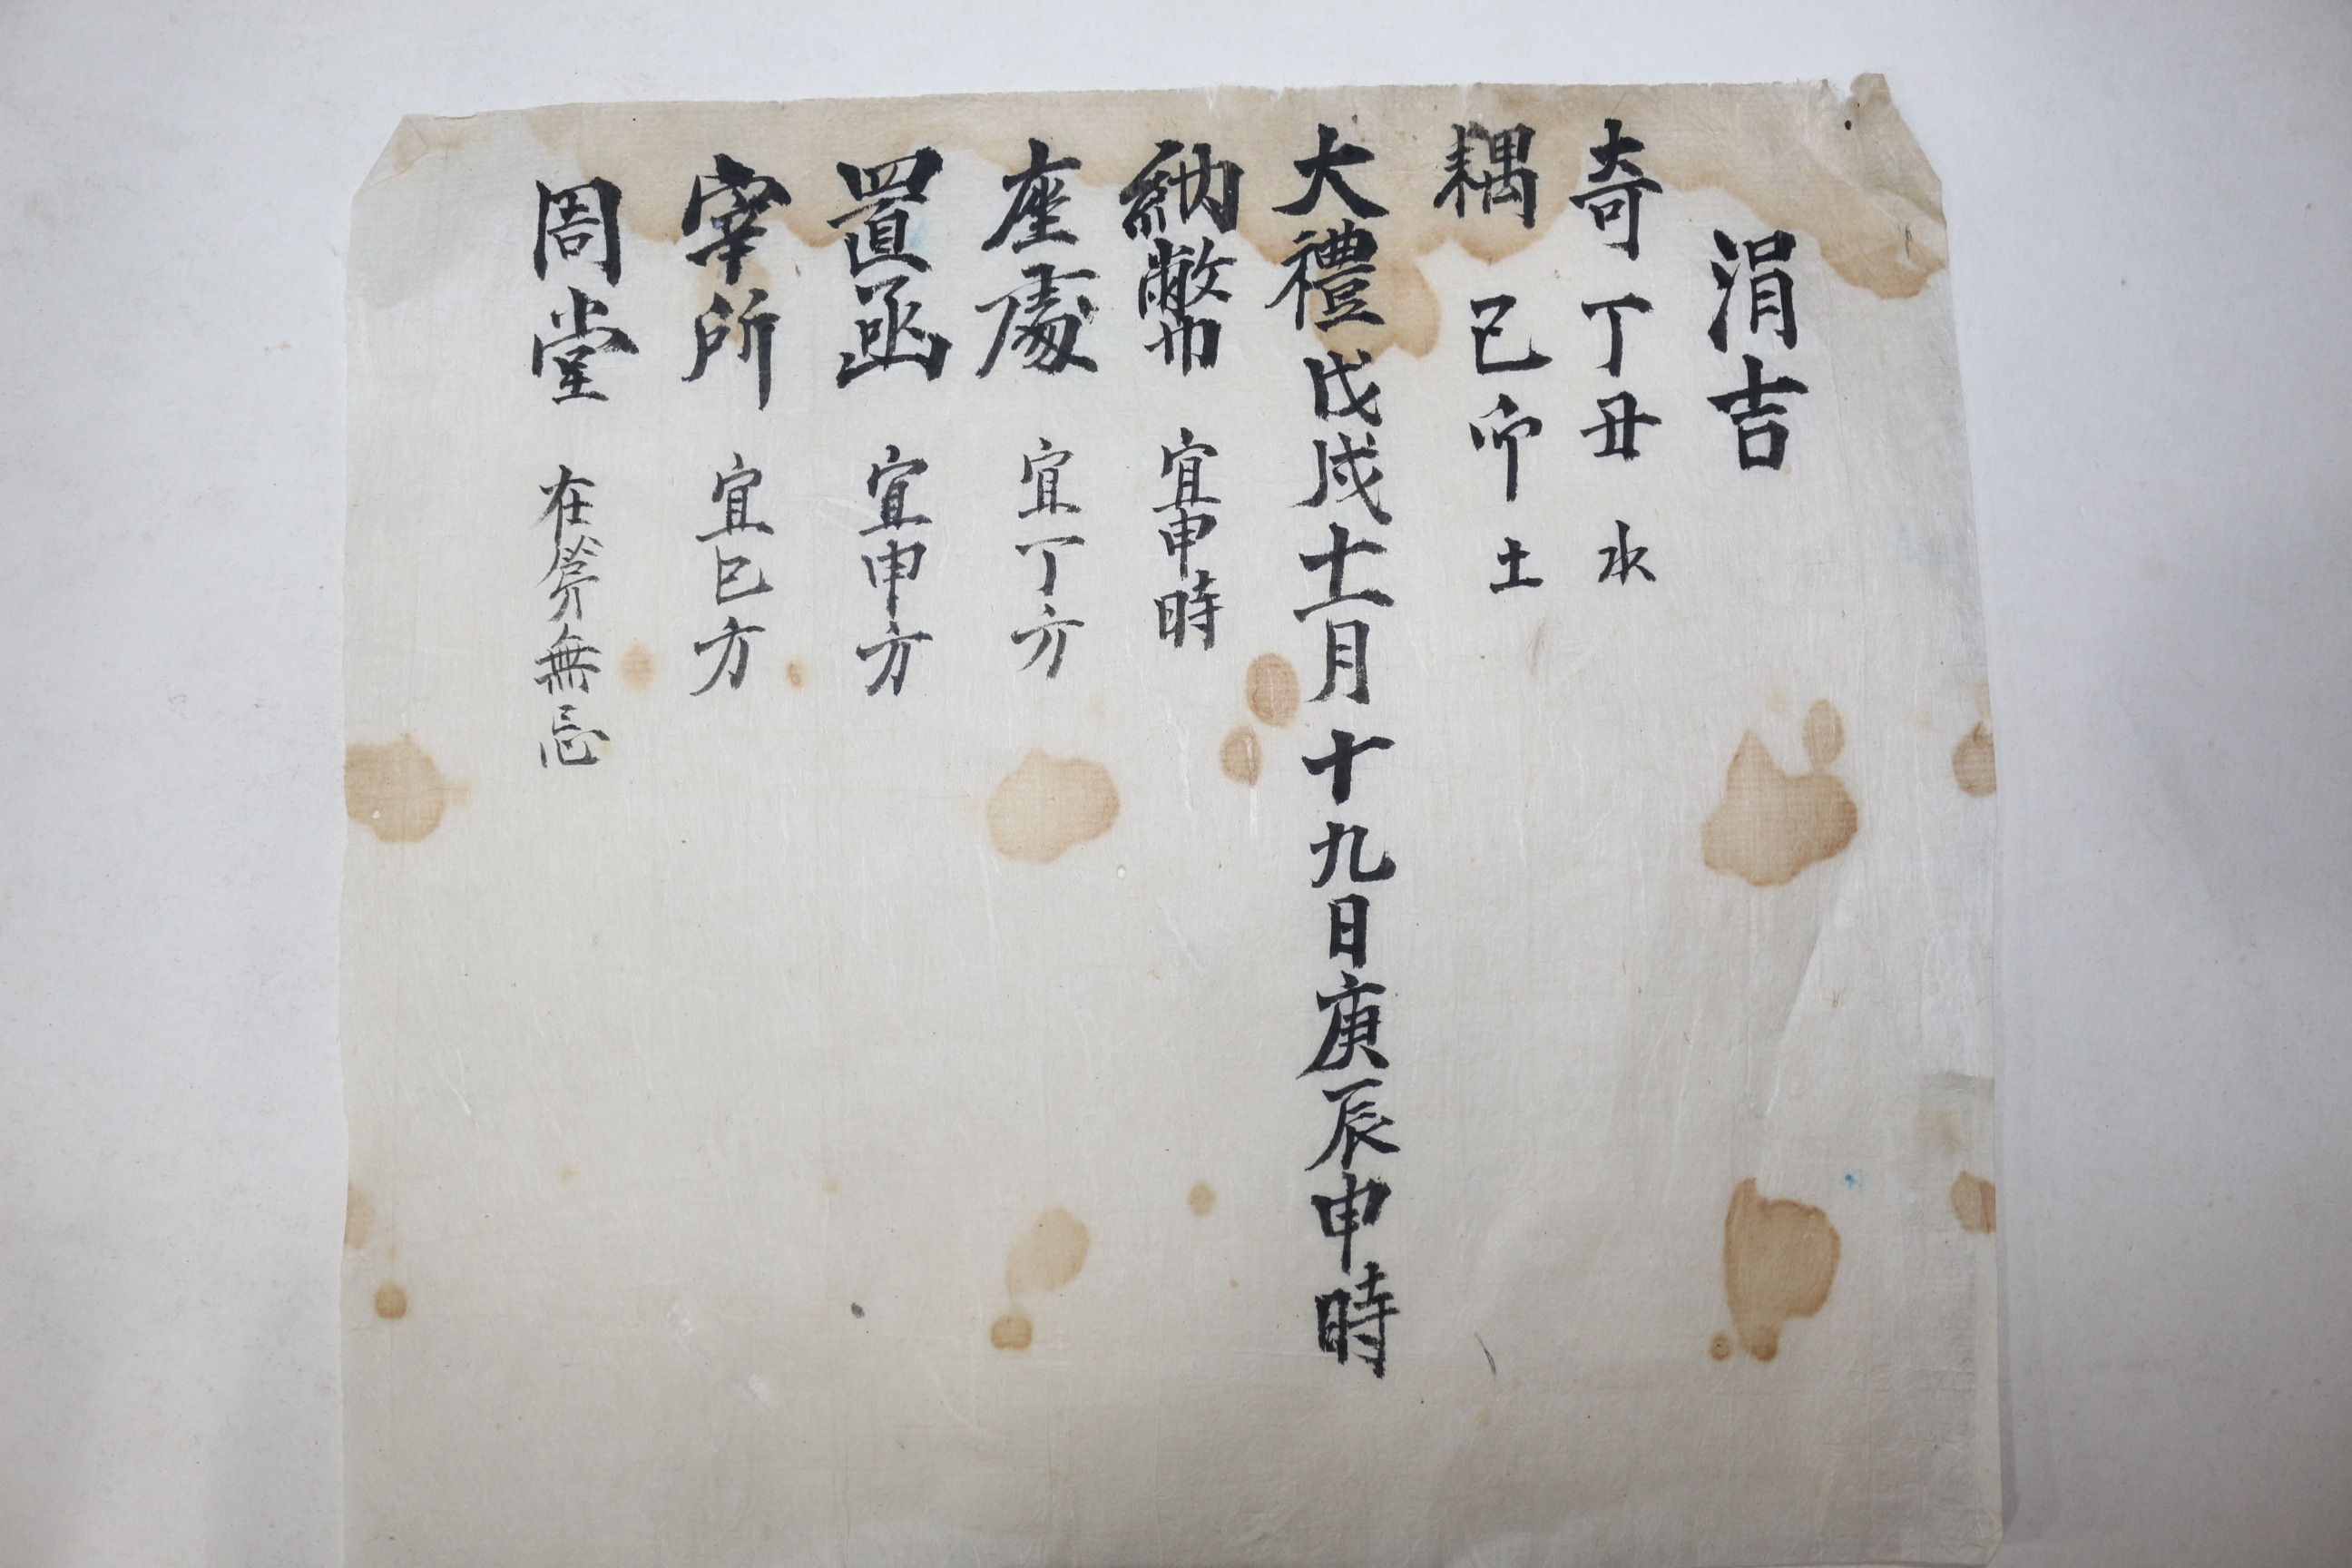 涓吉
奇 丁丑 水
耦 己卯 土
大禮戊戌十一月十九日庚辰申時
納幣 宜申時
座處 宜丁方
置函 宜申方
宰所 宜巳方
周堂 在第無忌